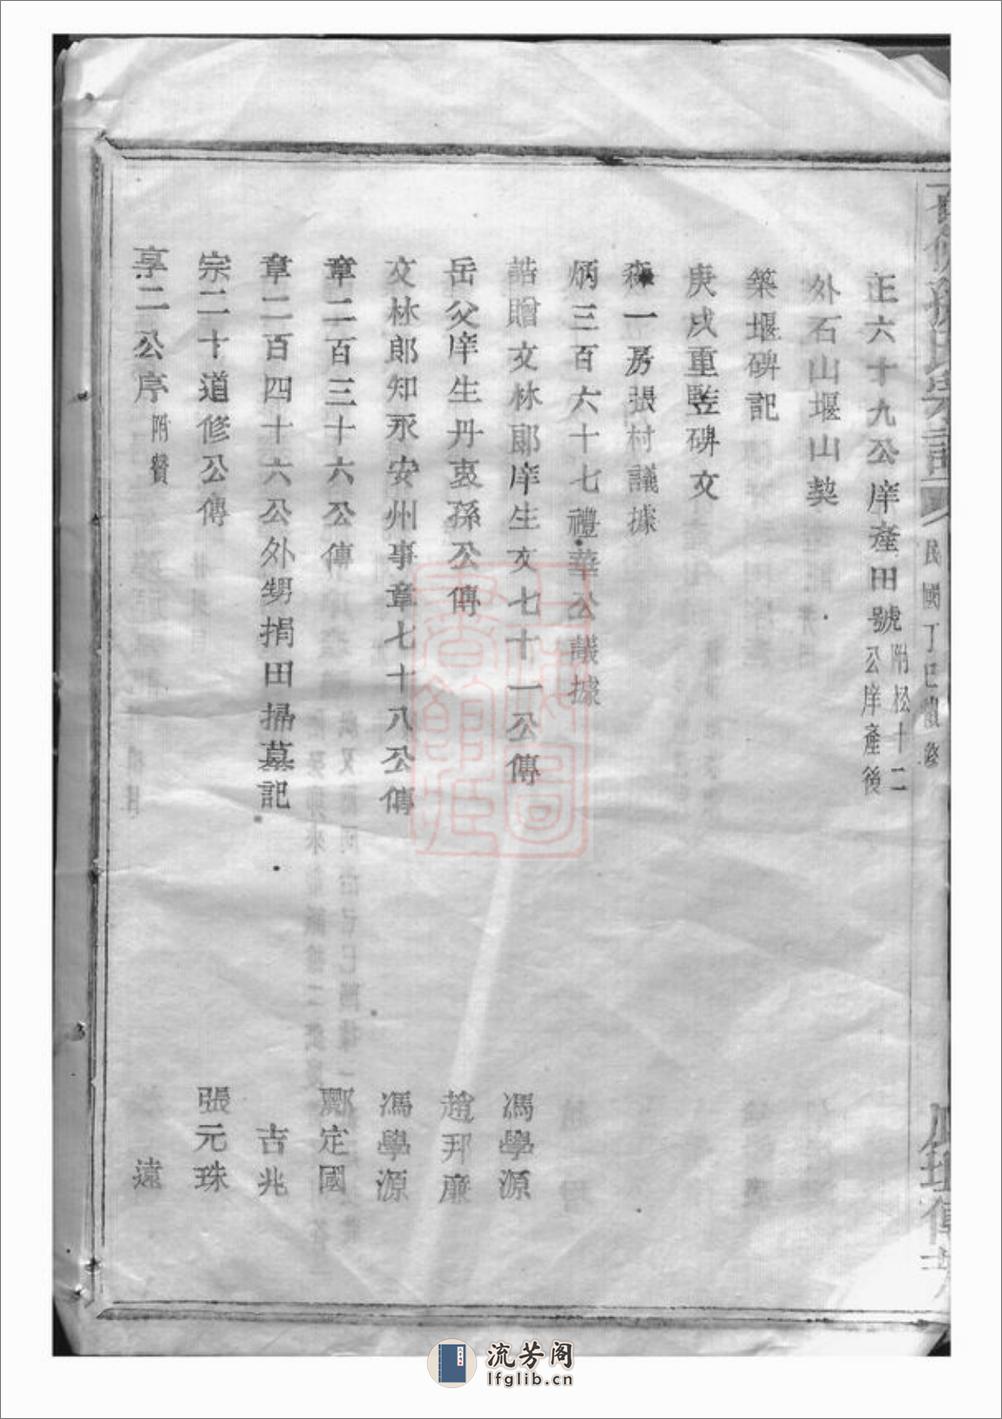 孫氏宗譜
民國丁巳
正六十九公庠產田號附松十二公庠產後
外石山堰山契
築堰碑記
庚戌重豎碑文
森一房張村議據
炳三百六十七禮華公議據
誥贈文林郎庠生文七十一公傳 馮學源
岳父庠生丹衷孫公傳 趙邦廉
文林郎知永安州事章七十八公傳 馮學源
章二百三十六公傳 鄭定國
章二百四十六公外甥捐田掃墓記 吉兆
宗二十道修公傳 張元珠
享二公序附贊 遠
流芳阁
lfglib.cn